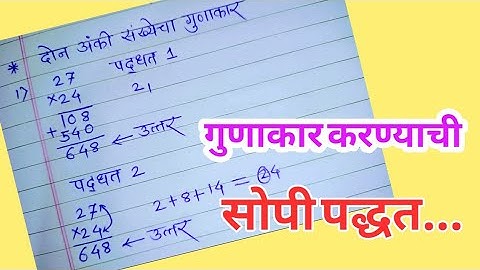 * दोन अंकी संख्येचा गुणाकार
1) 27 पद्धत 1
×24 2,
108
+540
648 ← उत्तर
पद्धत 2
27 2+8+14 = 24
×24
648 ← उत्तर
गुणाकार करण्याची
सोपी पद्धत...